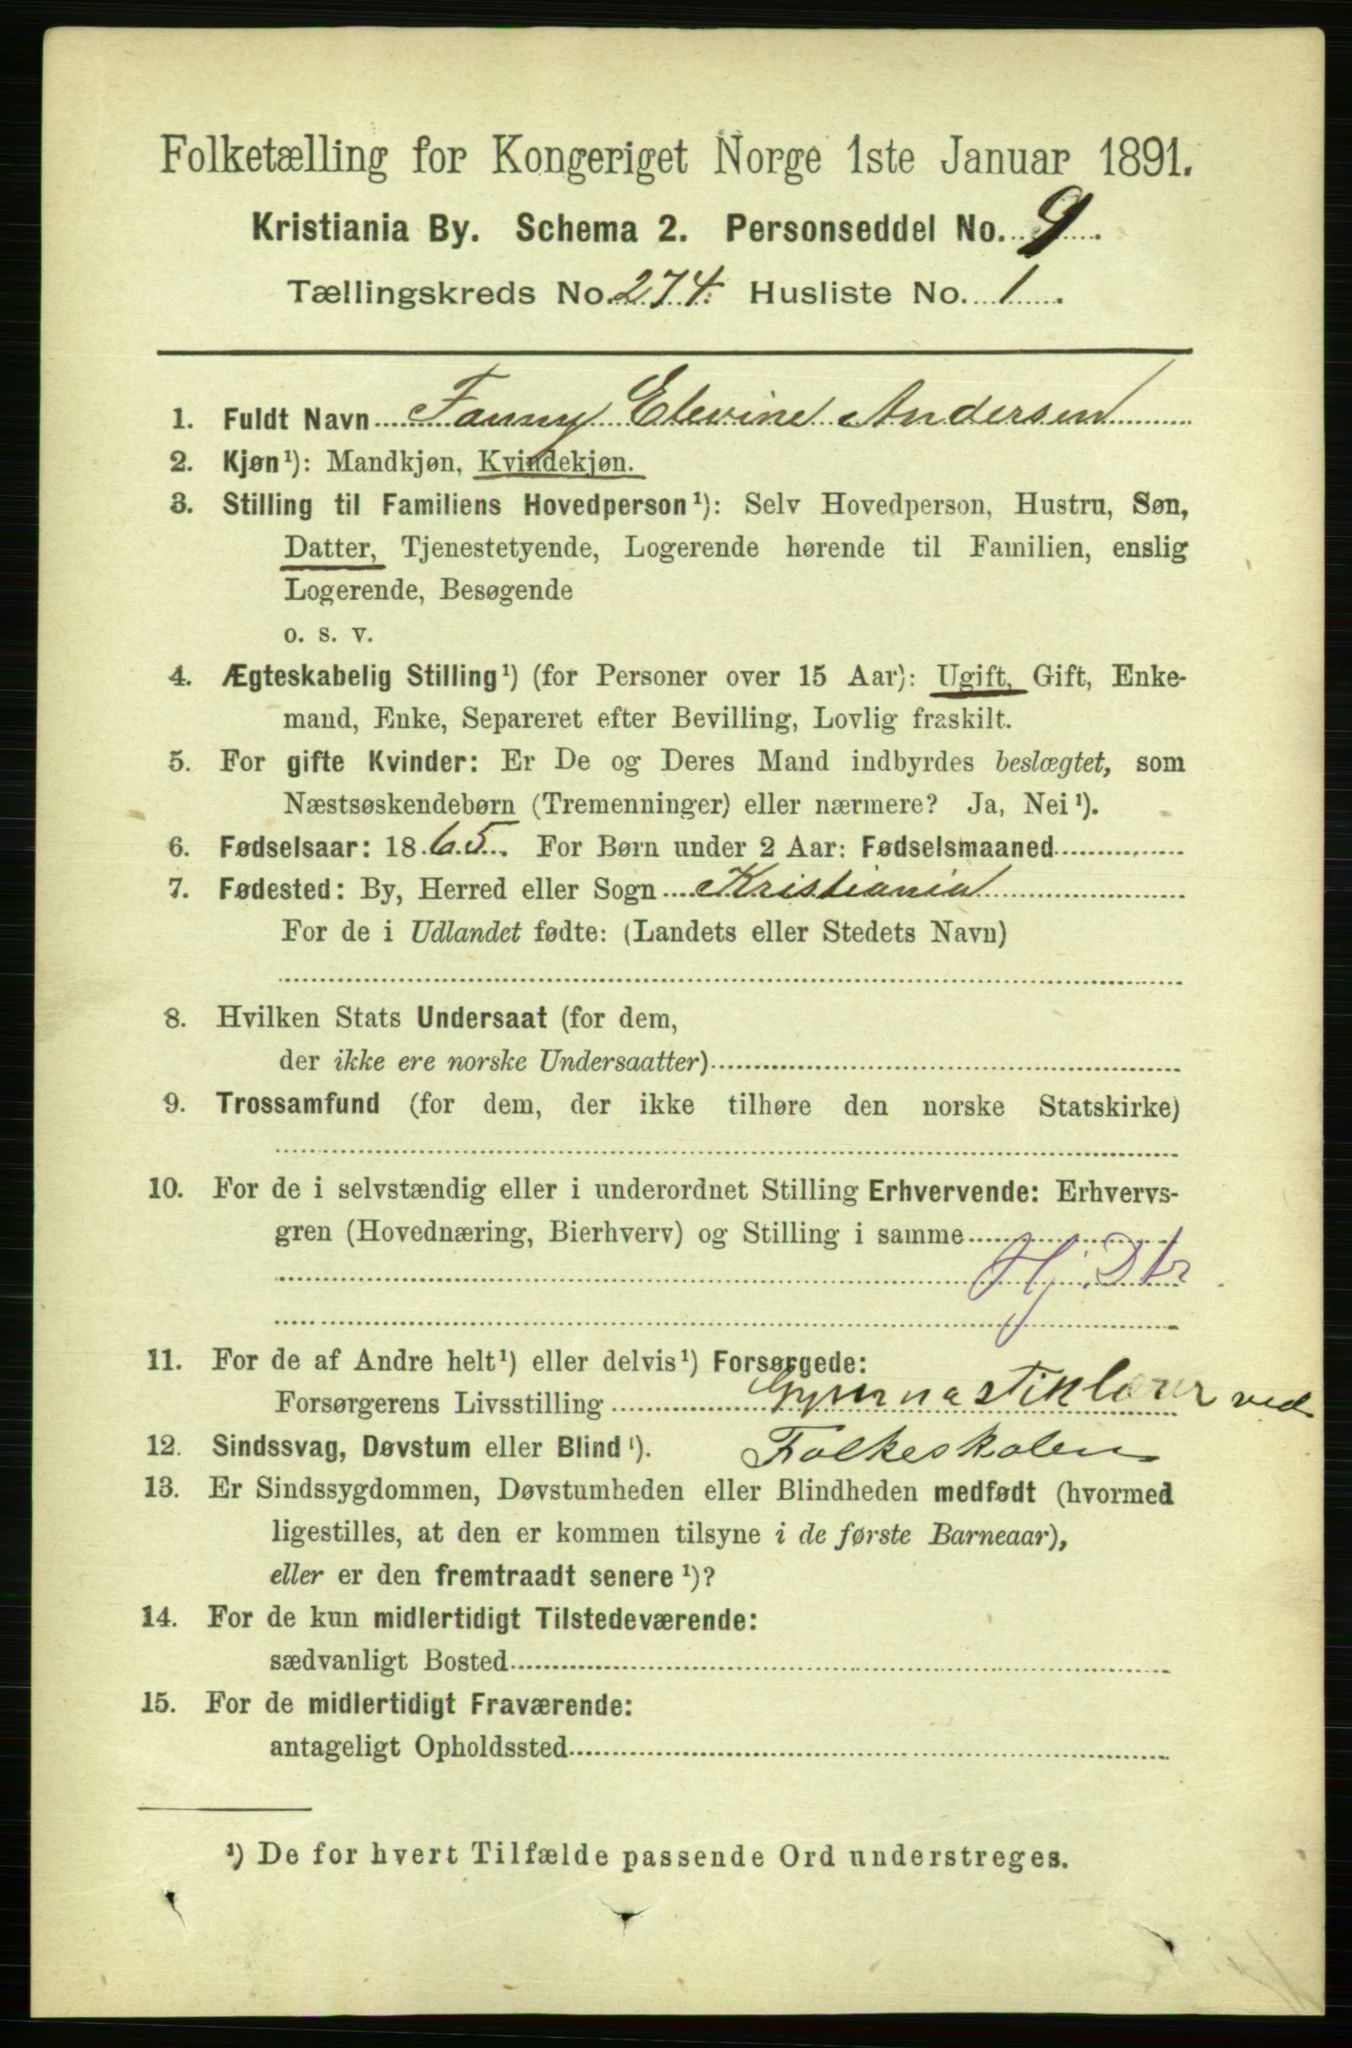 Folketælling for Kongeriget Norge 1ste Januar 1891.
Kristiania By. Schema 2. Personseddel No. 9.
Tællingskreds No. 274. Husliste No. 1.
1. Fuldt Navn Fanny Elevine Andersen
2. Kjøn¹): Mandkjøn, Kvindekjøn.
3. Stilling til Familiens Hovedperson¹): Selv Hovedperson, Hustru, Søn,
Datter, Tjenestetyende, Logerende hørende til Familien, enslig
Logerende, Besøgende
o. s. v.
4. Ægteskabelig Stilling¹) (for Personer over 15 Aar): Ugift, Gift, Enke-
mand, Enke, Separeret efter Bevilling, Lovlig fraskilt.
5. For gifte Kvinder: Er De og Deres Mand indbyrdes beslægtet, som
Næstsøskendebørn (Tremenninger) eller nærmere? Ja, Nei¹).
6. Fødselsaar: 1865. For Børn under 2 Aar: Fødselsmaaned
7. Fødested: By, Herred eller Sogn Kristiania
For de i Udlandet fødte: (Landets eller Stedets Navn)
8. Hvilken Stats Undersaat (for dem,
der ikke ere norske Undersaatter)
9. Trossamfund (for dem, der ikke tilhøre den norske Statskirke)
10. For de i selvstændig eller i underordnet Stilling Erhvervende: Erhvervs-
gren (Hovednæring, Bierhverv) og Stilling i samme
Hj. Dtr.
11. For de af Andre helt¹) eller delvis¹) Forsørgede:
Forsørgerens Livsstilling Gymnastiklærer ved
12. Sindssvag, Døvstum eller Blind¹). Folkeskolen
13. Er Sindssygdommen, Døvstumheden eller Blindheden medfødt (hvormed
ligestilles, at den er kommen tilsyne i de første Barneaar),
eller er den fremtraadt senere¹)?
14. For de kun midlertidigt Tilstedeværende:
sædvanligt Bosted
15. For de midlertidigt Fraværende:
antageligt Opholdssted
¹) De for hvert Tilfælde passende Ord understreges.